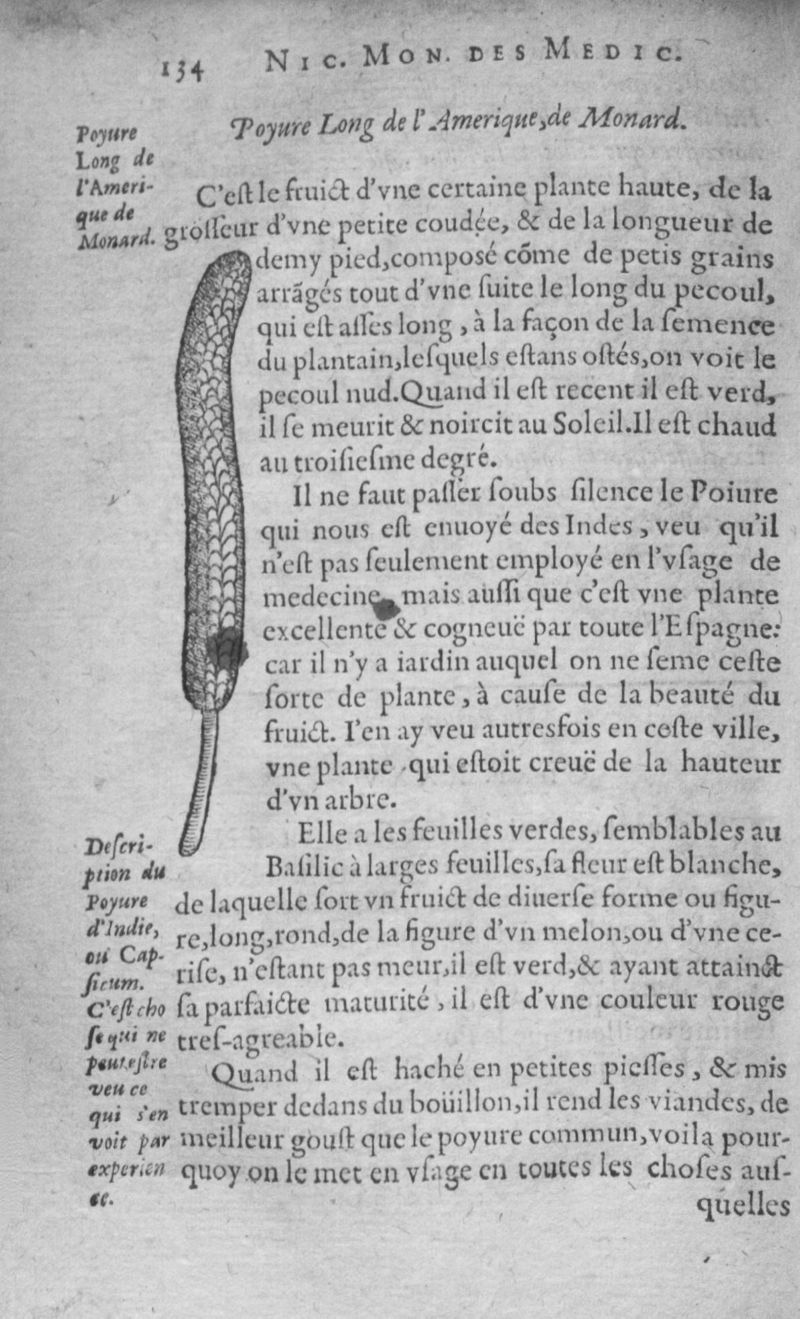 134 NIC. MON. DES MEDIC.
Poyure Long de l'Amerique, de Monard.
Poyure
Long de
l'Ameri-
que de
Monard.
C'eſt le fruict d'vne certaine plante haute, de la
groſſeur d'vne petite coudée, & de la longueur de
demy pied,compoſé cõme de petis grains
arrãgés tout d'vne ſuite le long du pecoul,
qui eſt aſſes long , à la façon de la ſemence
du plantain,leſquels eſtans oſtés,on voit le
pecoul nud.Quand il eſt recent il eſt verd,
il ſe meurit & noircit au Soleil.Il eſt chaud
au troiſieſme degré.
Il ne faut paſſer ſoubs ſilence le Poiure
qui nous eſt enuoyé des Indes , veu qu'il
n'eſt pas ſeulement employé en l'vſage de
medecine mais auſſi que c'eſt vne plante
excellente & cogneuë par toute l'Eſpagne:
car il n'y a iardin auquel on ne ſeme ceſte
ſorte de plante , à cauſe de la beauté du
fruict. I'en ay veu autresfois en ceſte ville,
vne plante qui eſtoit creuë de la hauteur
d'vn arbre.
Deſcri-
ption du
Poyure
d'Indie,
ou Cap-
ſicum.
C'eſt cho
ſe qui ne
peut eſtre
veu ce
qui s'en
voit par
experien
ce.
Elle a les feuilles verdes, ſemblables au
Baſilic à larges feuilles,ſa fleur eſt blanche,
de laquelle ſort vn fruict de diuerſe forme ou figu-
re,long,rond,de la figure d'vn melon,ou d'vne ce-
riſe, n'eſtant pas meur,il eſt verd,& ayant attainct
ſa parfaicte maturité , il eſt d'vne couleur rouge
treſ-agreable.
Quand il eſt haché en petites pieſſes , & mis
tremper dedans du boüillon,il rend les viandes, de
meilleur gouſt que le poyure commun,voila pour-
quoy on le met en vſage en toutes les choſes auſ-
quelles